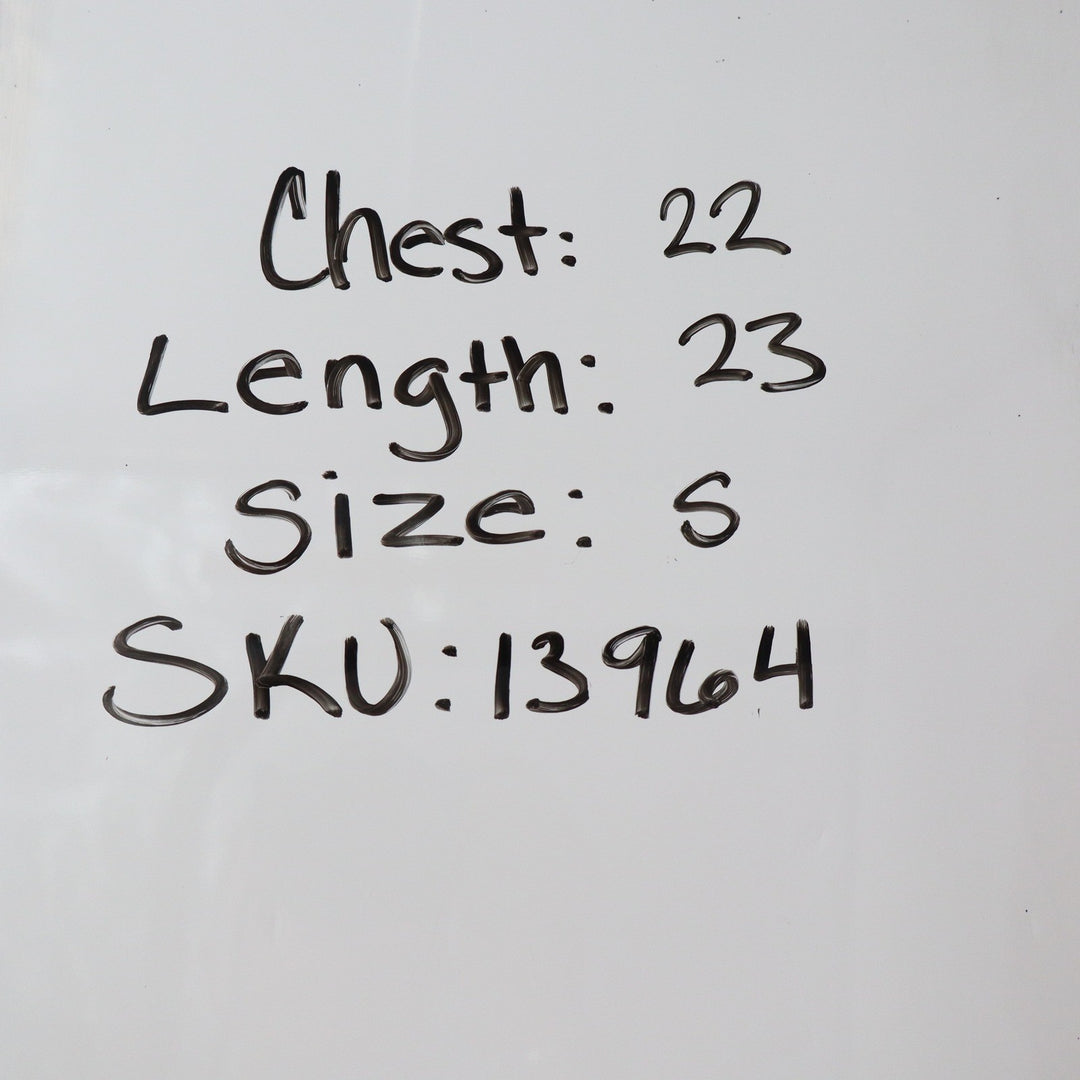 Chest: 22
Length: 23
Size: S
SKU: 13964